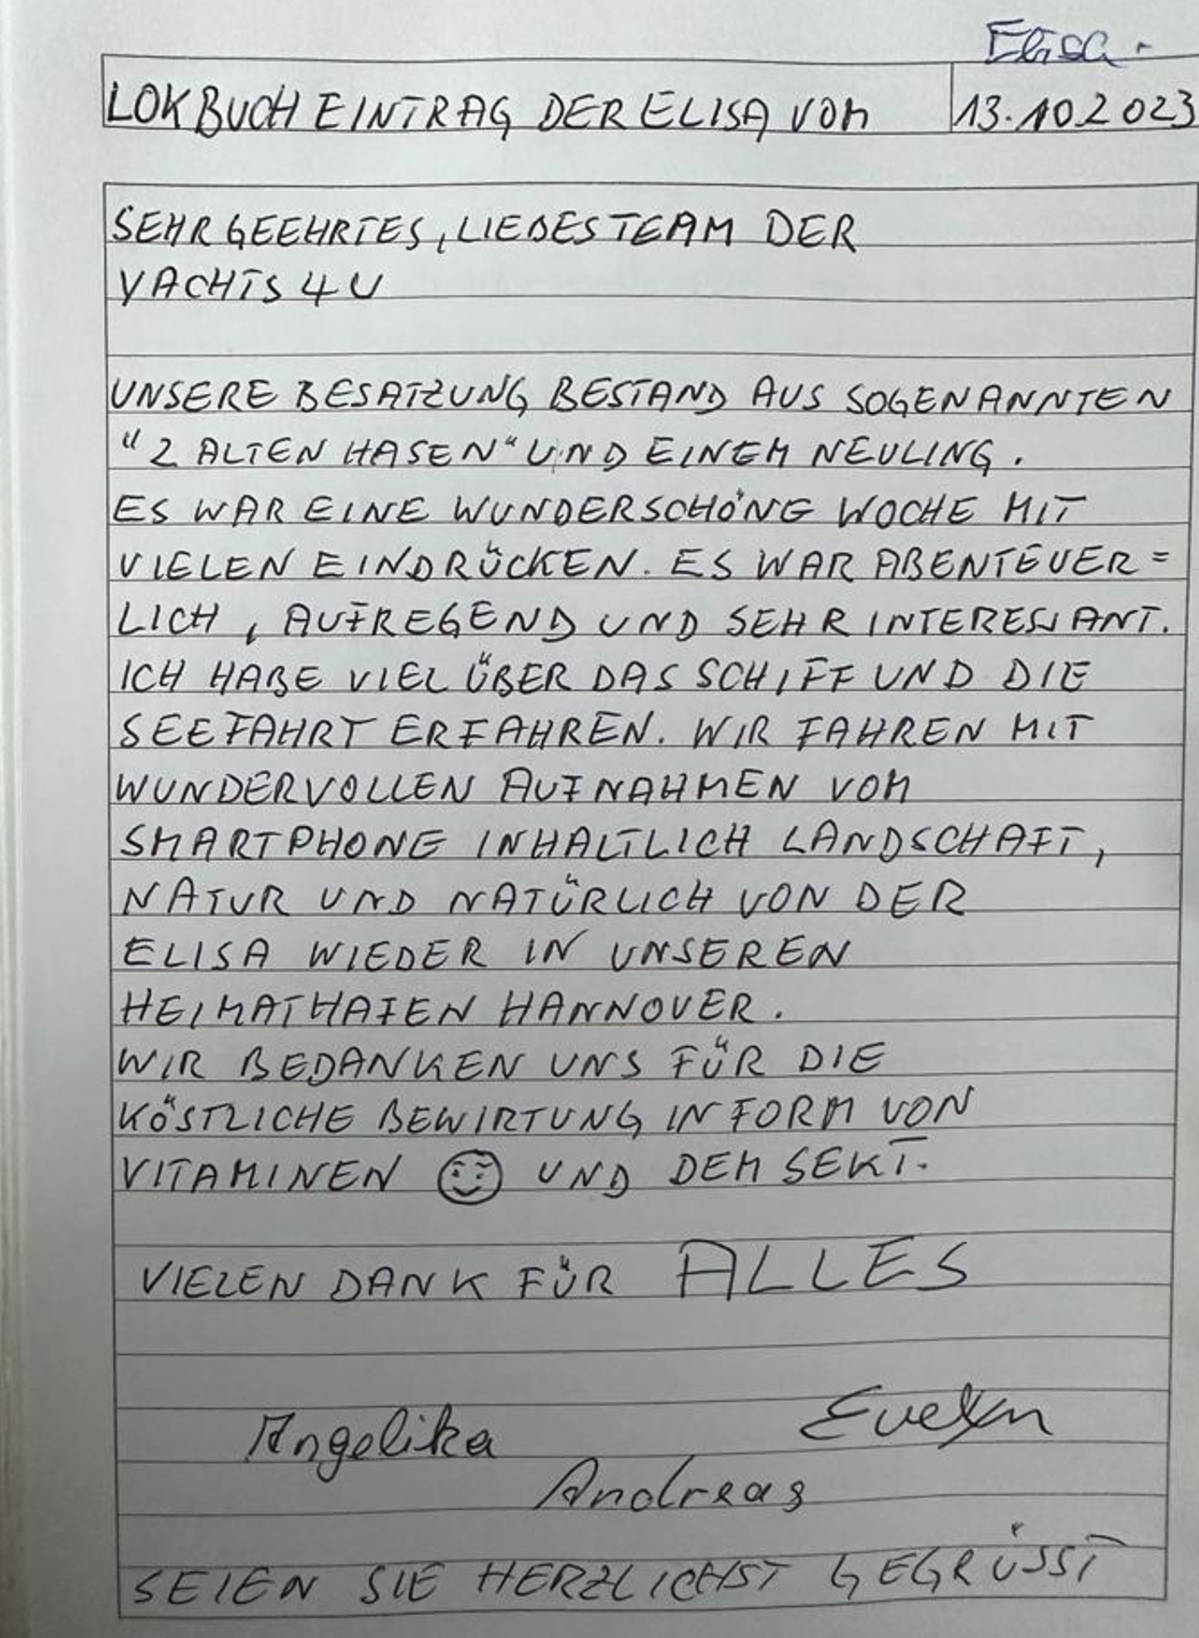 Elisa.
LOKBUCH EINTRAG DER ELISA VOM 13.10.2023
SEHR GEEHRTES, LIEBES TEAM DER
YACHTS 4 U
UNSERE BESATZUNG BESTAND AUS SOGENANNTEN
"2 ALTEN HASEN" UND EINEM NEULING.
ES WAR EINE WUNDERSCHÖNE WOCHE MIT
VIELEN EINDRÜCKEN. ES WAR ABENTEUER=
LICH, AUFREGEND UND SEHR INTERESSANT.
ICH HABE VIEL ÜBER DAS SCHIFF UND DIE
SEEFAHRT ERFAHREN. WIR FAHREN MIT
WUNDERVOLLEN AUFNAHMEN VOM
SMARTPHONE INHALTLICH LANDSCHAFT,
NATUR UND NATÜRLICH VON DER
ELISA WIEDER IN UNSEREN
HEIMATHAFEN HANNOVER.
WIR BEDANKEN UNS FÜR DIE
KÖSTLICHE BEWIRTUNG IN FORM VON
VITAMINEN ☺ UND DEM SEKT.
VIELEN DANK FÜR ALLES
Angelika Evelyn
Andreas
SEIEN SIE HERZLICHST GEGRÜSST